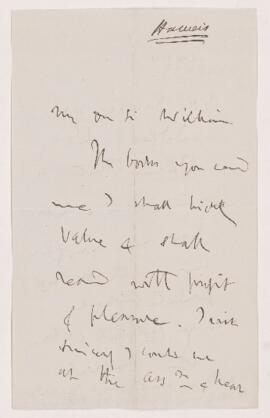 Haweis
My dear Sir William
The books you send
me I shall highly
value & shall
read with profit
& pleasure. I wish
sincerely I could be
at the Assn & hear